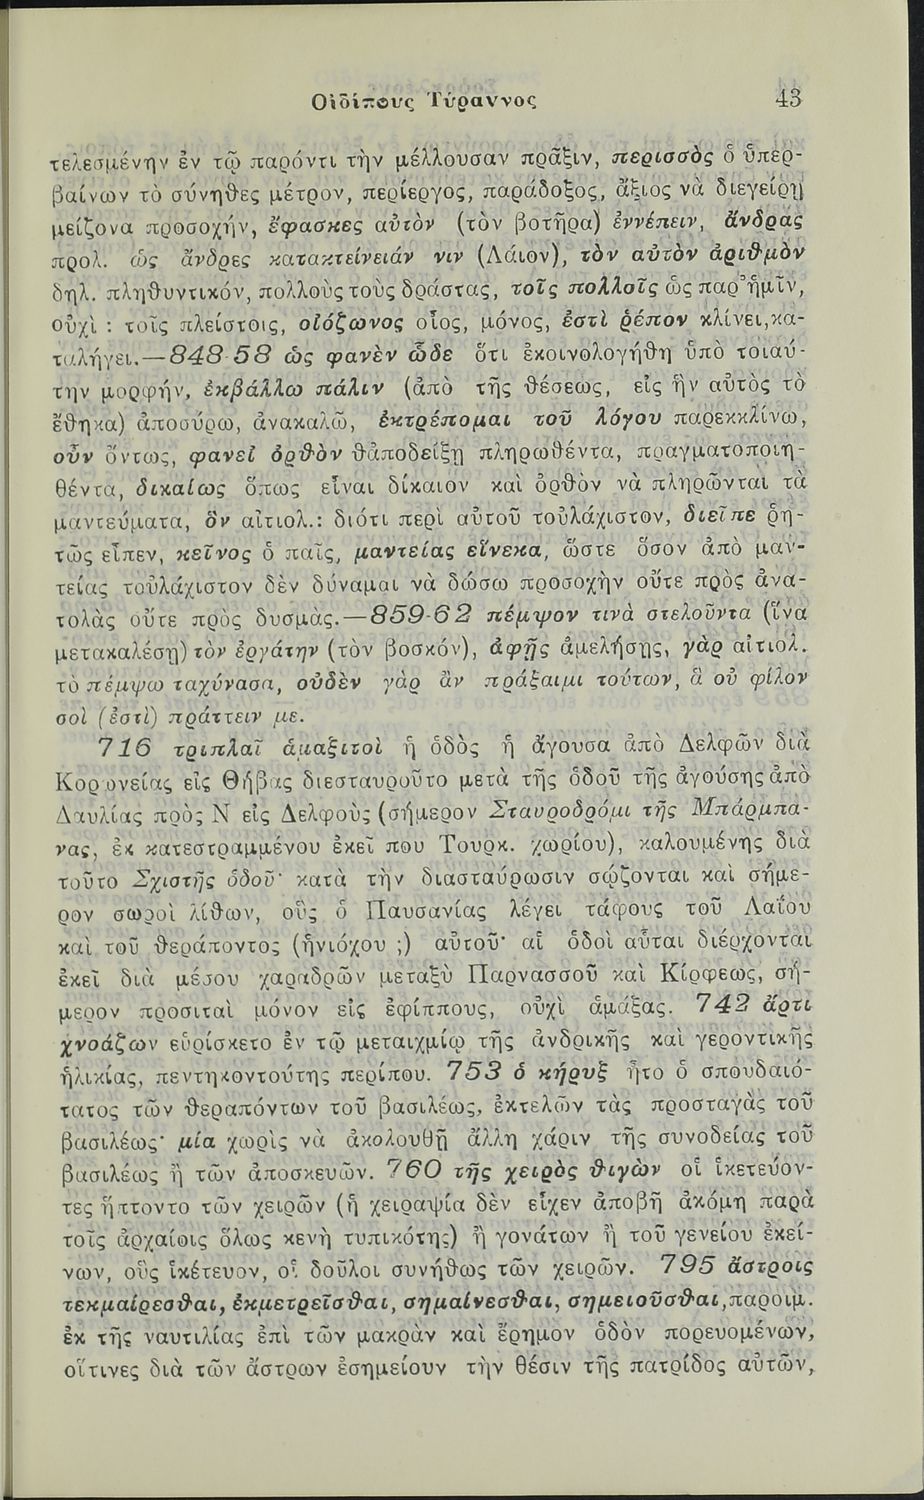 Οἰδίπους Τύραννος 43
τελεσμένην ἐν τῷ παρόντι τὴν μέλλουσαν πρᾶξιν, περισσὸς ὁ ὑπερ-
βαίνων τὸ σύνηθες μέτρον, περίεργος, παράδοξος, ἄξιος νὰ διεγείρῃ
μείζονα προσοχήν, ἔφασκες αὐτὸν (τὸν βοτῆρα) ἐννέπειν, ἄνδρας
προλ. ὡς ἄνδρες κατακτείνειάν νιν (Λάιον), τὸν αὐτὸν ἀριθμὸν
δηλ. πληθυντικόν, πολλοὺς τοὺς δράστας, τοῖς πολλοῖς ὡς παρ' ἡμῖν,
οὐχὶ : τοῖς πλείστοις, οἰόζωνος οἶος, μόνος, ἐστὶ ῥέπον κλίνει,κα-
ταλήγει.—848-58 ὡς φανὲν ὧδε ὅτι ἐκοινολογήθη ὑπὸ τοιαύ-
την μορφήν, ἐκβάλλω πάλιν (ἀπὸ τῆς θέσεως, εἰς ἣν αὐτὸς τὸ
ἔθηκα) ἀποσύρω, ἀνακαλῶ, ἐκτρέπομαι τοῦ λόγου παρεκκλίνω,
οὖν ὄντως, φανεῖ ὀρθὸν θἀποδείξῃ πληρωθέντα, πραγματοποιη-
θέντα, δικαίως ὅπως εἶναι δίκαιον καὶ ὀρθὸν νὰ πληρῶνται τὰ
μαντεύματα, ὃν αἰτιολ.: διότι περὶ αὐτοῦ τοὐλάχιστον, διεῖπε ῥη-
τῶς εἶπεν, κεῖνος ὁ παῖς, μαντείας εἵνεκα, ὥστε ὅσον ἀπὸ μαν-
τείας τοὐλάχιστον δὲν δύναμαι νὰ δώσω προσοχὴν οὔτε πρὸς ἀνα-
τολὰς οὔτε πρὸς δυσμάς.—859-62 πέμψον τινὰ στελοῦντα (ἵνα
μετακαλέσῃ) τὸν ἐργάτην (τὸν βοσκόν), ἀφῇς ἀμελήσῃς, γὰρ αἰτιολ.
τὸ πέμψω ταχύνασα, οὐδὲν γὰρ ἂν πράξαιμι τούτων, ἃ οὐ φίλον
σοὶ (ἐστὶ) πράττειν με.
716 τριπλαῖ ἁμαξιτοὶ ἡ ὁδὸς ἡ ἄγουσα ἀπὸ Δελφῶν διὰ
Κορωνείας εἰς Θήβας διεσταυροῦτο μετὰ τῆς ὁδοῦ τῆς ἀγούσης ἀπὸ
Δαυλίας πρὸς Ν εἰς Δελφοὺς (σήμερον Σταυροδρόμι τῆς Μπάρμπα-
νας, ἐκ κατεστραμμένου ἐκεῖ που Τουρκ. χωρίου), καλουμένης διὰ
τοῦτο Σχιστῆς ὁδοῦ· κατὰ τὴν διασταύρωσιν σῴζονται καὶ σήμε-
ρον σωροὶ λίθων, οὓς ὁ Παυσανίας λέγει τάφους τοῦ Λαΐου
καὶ τοῦ θεράποντος (ἡνιόχου ;) αὐτοῦ· αἱ ὁδοὶ αὗται διέρχονται
ἐκεῖ διὰ μέσου χαραδρῶν μεταξὺ Παρνασσοῦ καὶ Κίρφεως, σή-
μερον προσιταὶ μόνον εἰς ἐφίππους, οὐχὶ ἁμάξας. 742 ἄρτι
χνοάζων εὑρίσκετο ἐν τῷ μεταιχμίῳ τῆς ἀνδρικῆς καὶ γεροντικῆς
ἡλικίας, πεντηκοντούτης περίπου. 753 ὁ κῆρυξ ἦτο ὁ σπουδαιό-
τατος τῶν θεραπόντων τοῦ βασιλέως, ἐκτελῶν τὰς προσταγὰς τοῦ
βασιλέως· μία χωρὶς νὰ ἀκολουθῇ ἄλλη χάριν τῆς συνοδείας τοῦ
βασιλέως ἢ τῶν ἀποσκευῶν. 760 τῆς χειρὸς θιγὼν οἱ ἱκετεύον-
τες ἥπτοντο τῶν χειρῶν (ἡ χειραψία δὲν εἶχεν ἀποβῆ ἀκόμη παρὰ
τοῖς ἀρχαίοις ὅλως κενὴ τυπικότης) ἢ γονάτων ἢ τοῦ γενείου ἐκεί-
νων, οὓς ἱκέτευον, οἱ δοῦλοι συνήθως τῶν χειρῶν. 795 ἄστροις
τεκμαίρεσθαι, ἐκμετρεῖσθαι, σημαίνεσθαι, σημειοῦσθαι,παροιμ.
ἐκ τῆς ναυτιλίας ἐπὶ τῶν μακρὰν καὶ ἔρημον ὁδὸν πορευομένων,
οἵτινες διὰ τῶν ἄστρων ἐσημείουν τὴν θέσιν τῆς πατρίδος αὐτῶν,